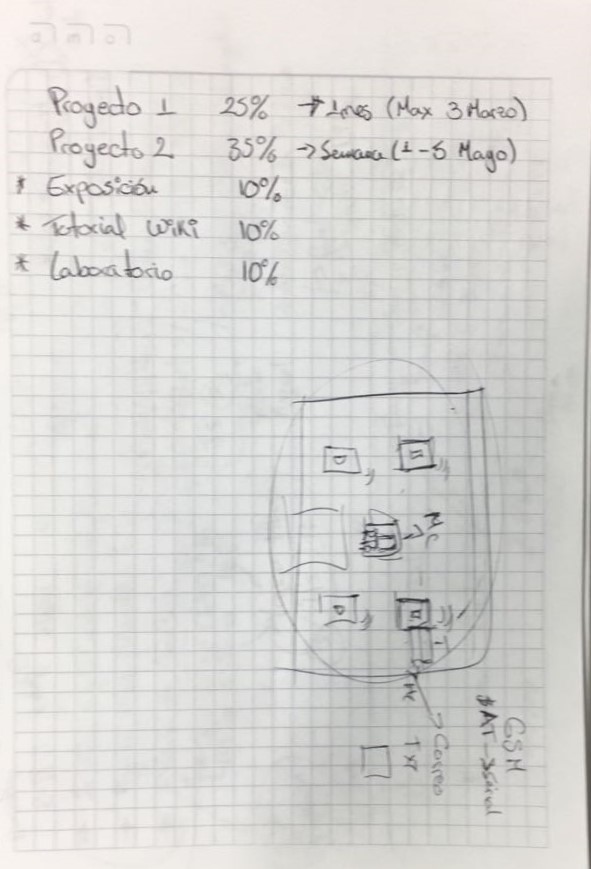 Proyecto 1 25% → 1mes (Max 3 Marzo)
Proyecto 2 35% → Semana (1-5 Mayo)
* Exposición 10%
* Tutorial Wiki 10%
* Laboratorio 10%
GSM
AT → Serial
→ Correo
TXT